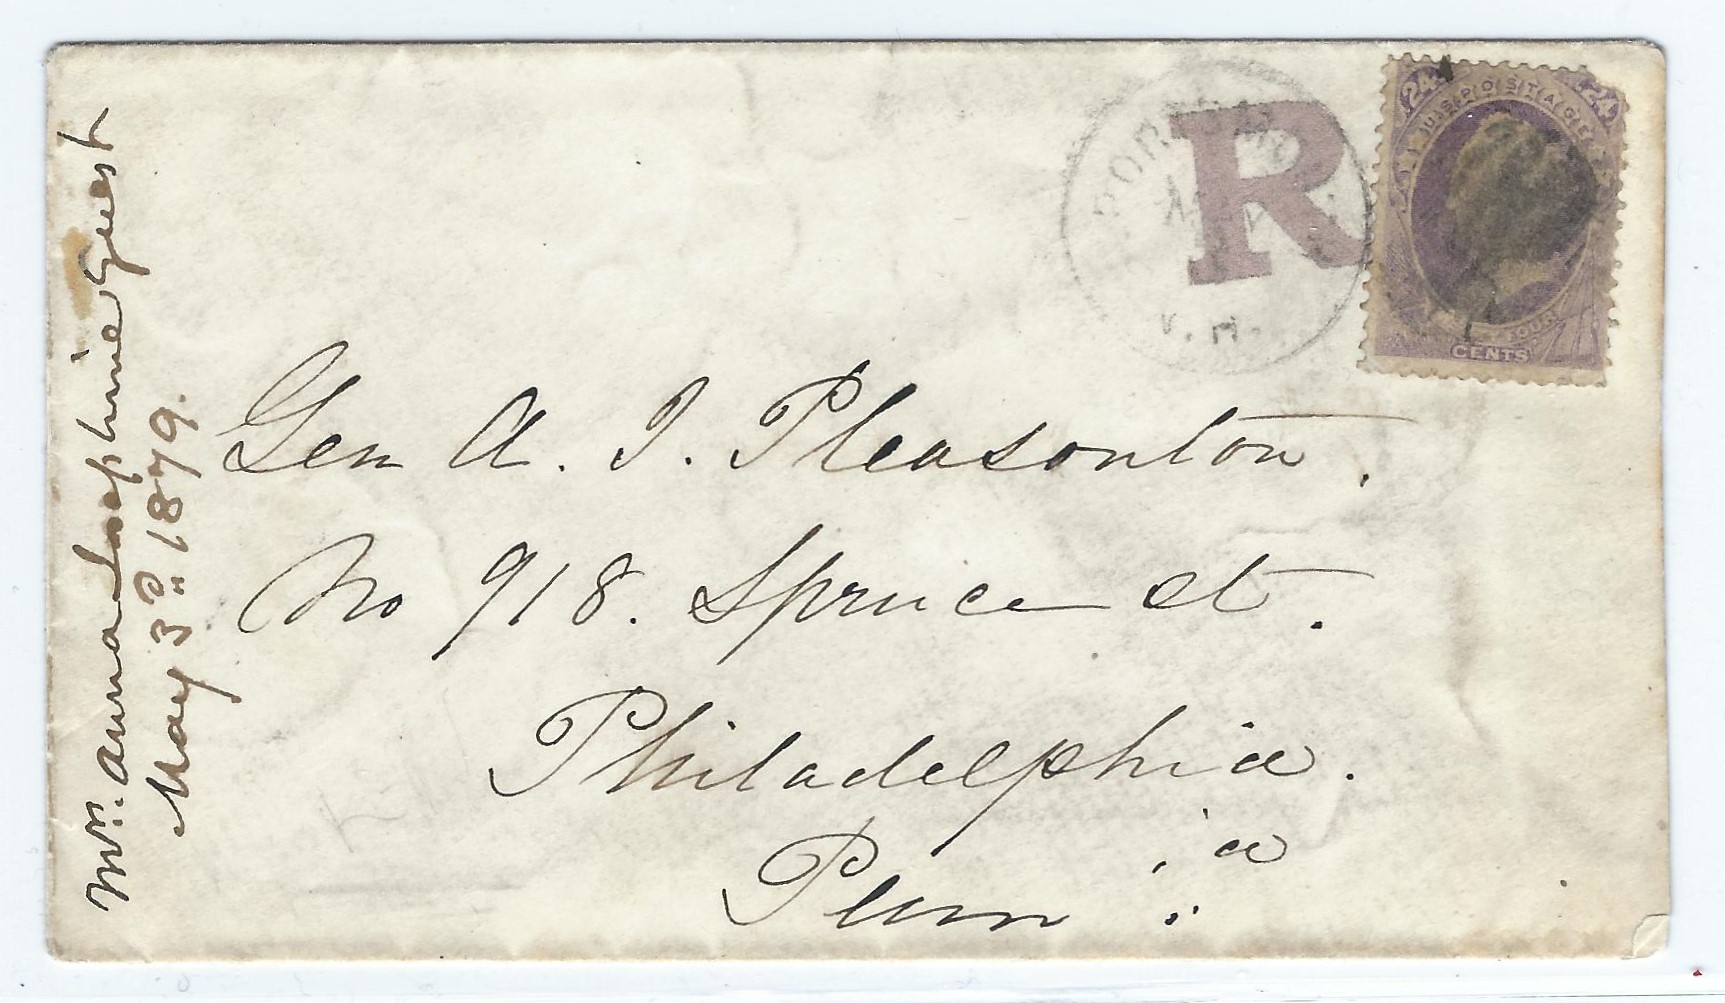 Mrs. Anna Josephine Guest
May 3d. 1879.
R
N.H.
24 24
U.S. POSTAGE
FOUR
CENTS
Gen A. J. Pleasonton.
No 918. Spruce St.
Philadelphia.
Penn ia